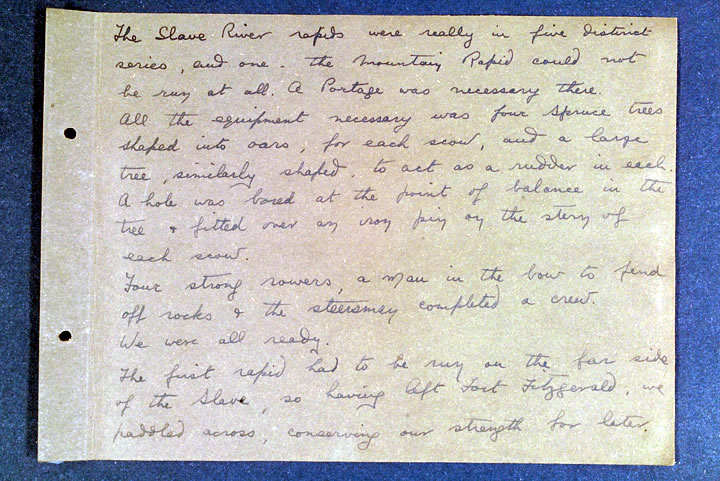 The Slave River rapids were really in five distinct
series, and one - the Mountain Rapid could not
be run at all. A Portage was necessary there.
All the equipment necessary was four spruce trees
shaped into oars, for each scow, and a large
tree, similarly shaped, to act as a rudder in each.
A hole was bored at the point of balance in the
tree & fitted over an iron pin on the stern of
each scow.
Four strong rowers, a man in the bow to fend
off rocks & the steersman completed a crew.
We were all ready.
The first rapid had to be run on the far side
of the Slave, so having left Fort Fitzgerald, we
paddled across, conserving our strength for later.